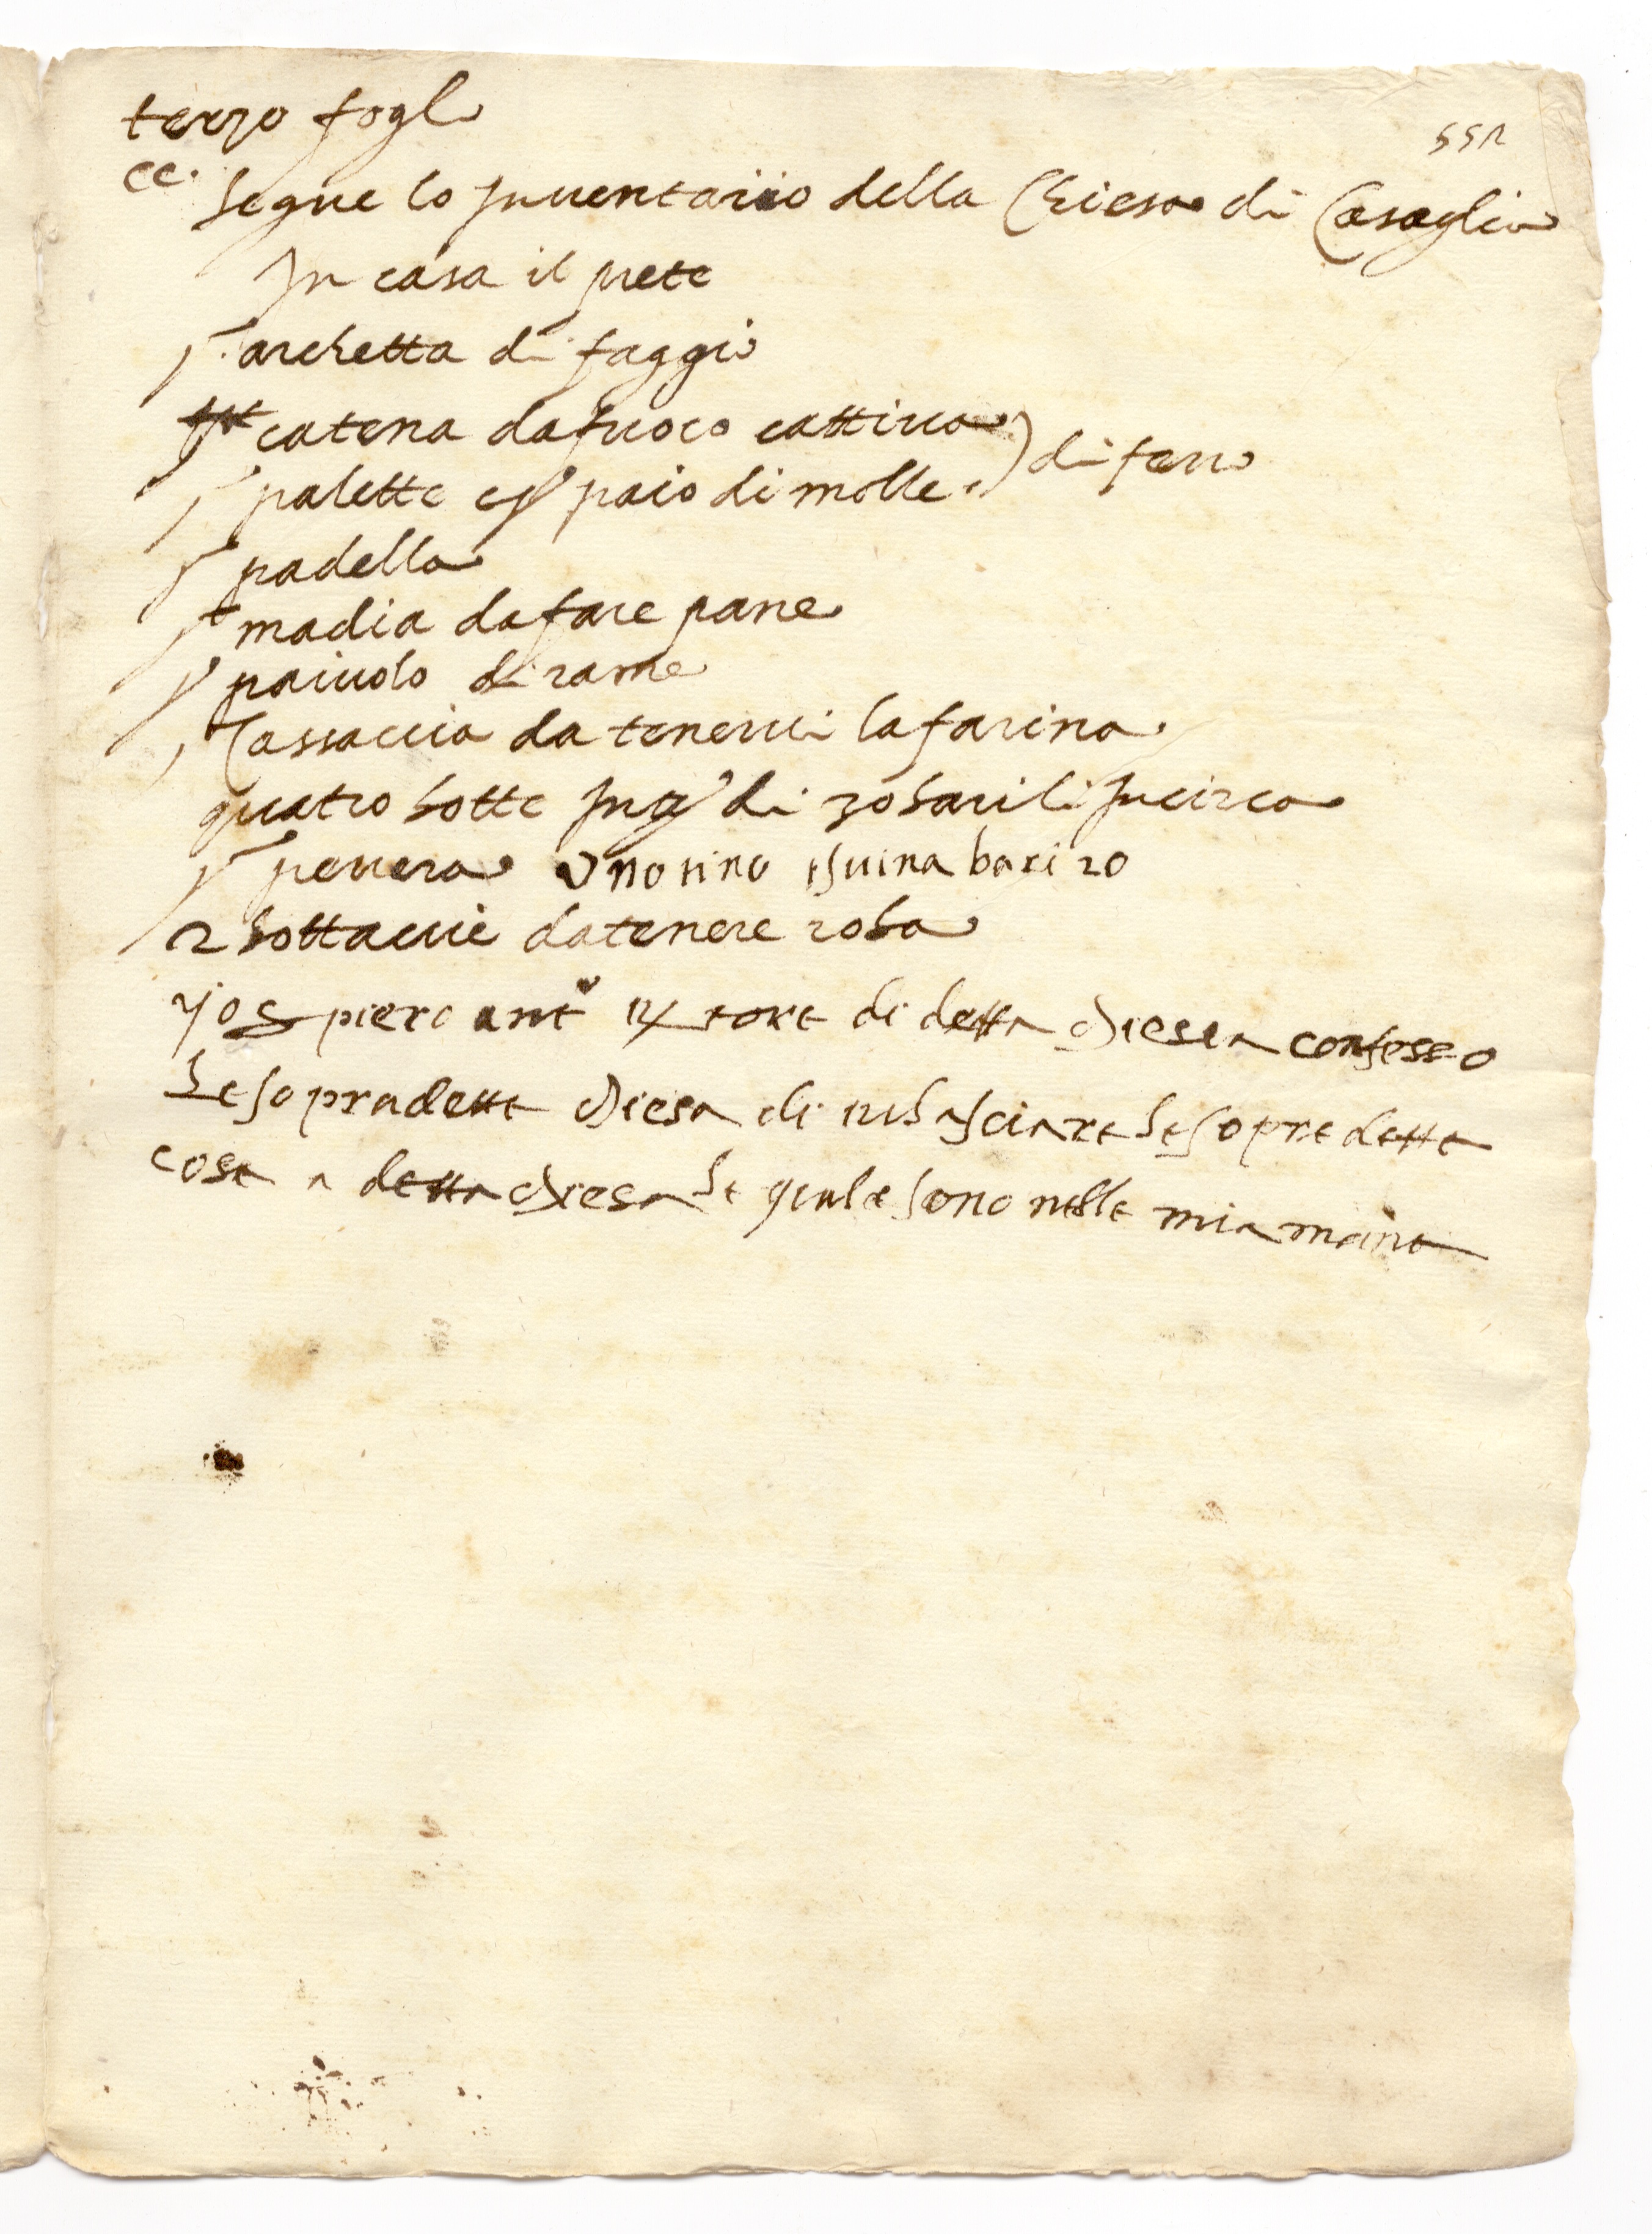 terzo fogl
552
cc. Segue lo Inventario della Chiesa di Casaglia
In casa il prete
1ª archetta di faggio
1ª catena da fuoco cattiva) di ferro
1ª palette e 1º paio di molle.)
1ª padella
1ª madia da fare pane
1º paiuolo di rame
1ª Cassaccia da tenervi la farina.
quatro botte di 30 barili in circa
1ª pevera uno tino vina bari 20
2 bottacie da tenere roba
Jo S piero antº rettore di detta chiesa confesso
le sopradette chiesa di rilasciare le sopre dette
cose a detta chiesa le quale sono nelle mia mane